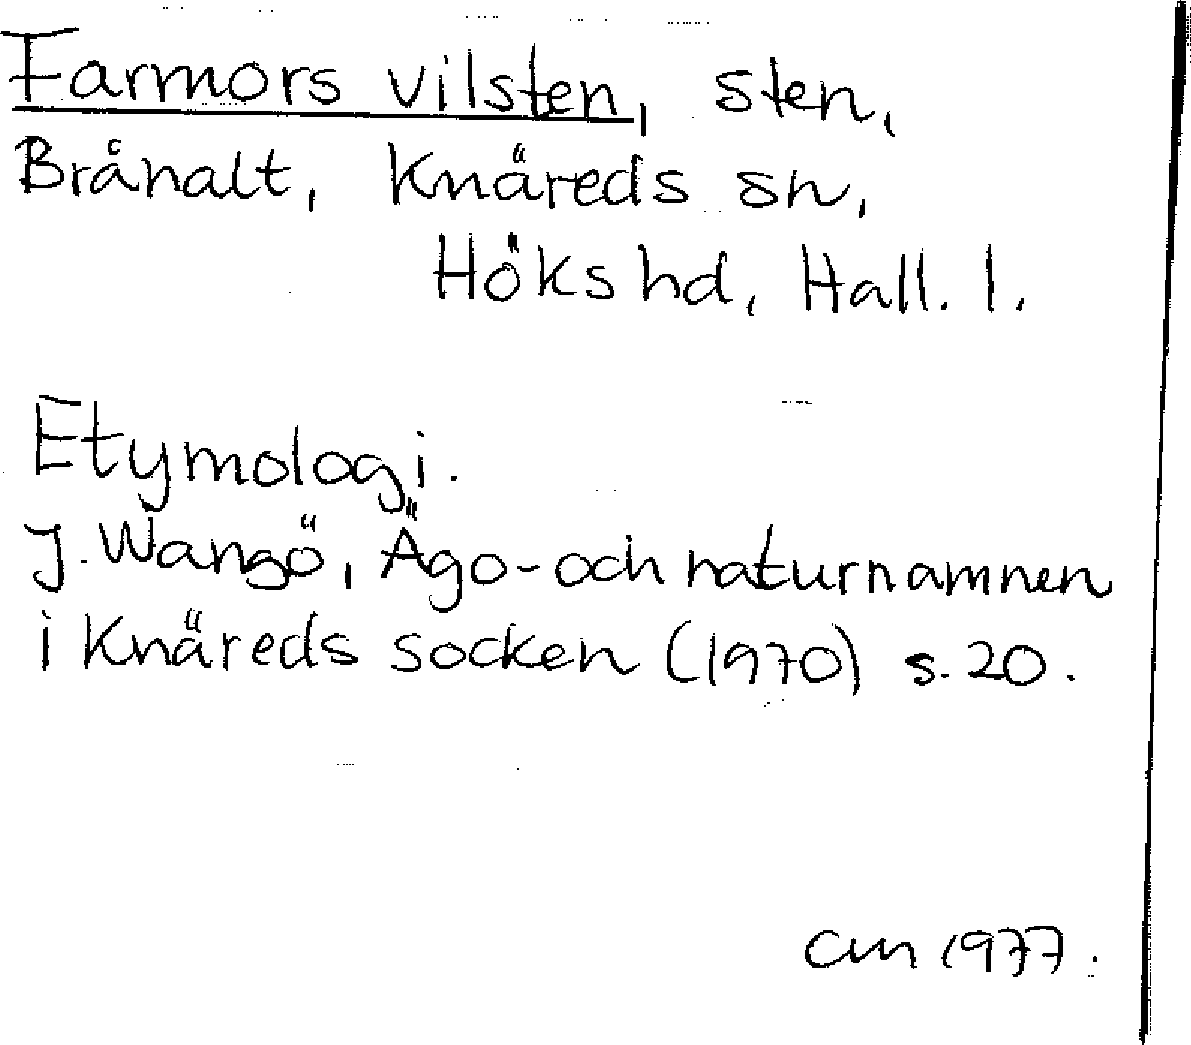 Farmors vilsten, sten,
Brånalt, Knäreds sn,
Höks hd, Hall. l.
Etymologi.
J. Wangö, Ägo- och naturnamnen
i Knäreds socken (1970) s. 20.
CM 1977.